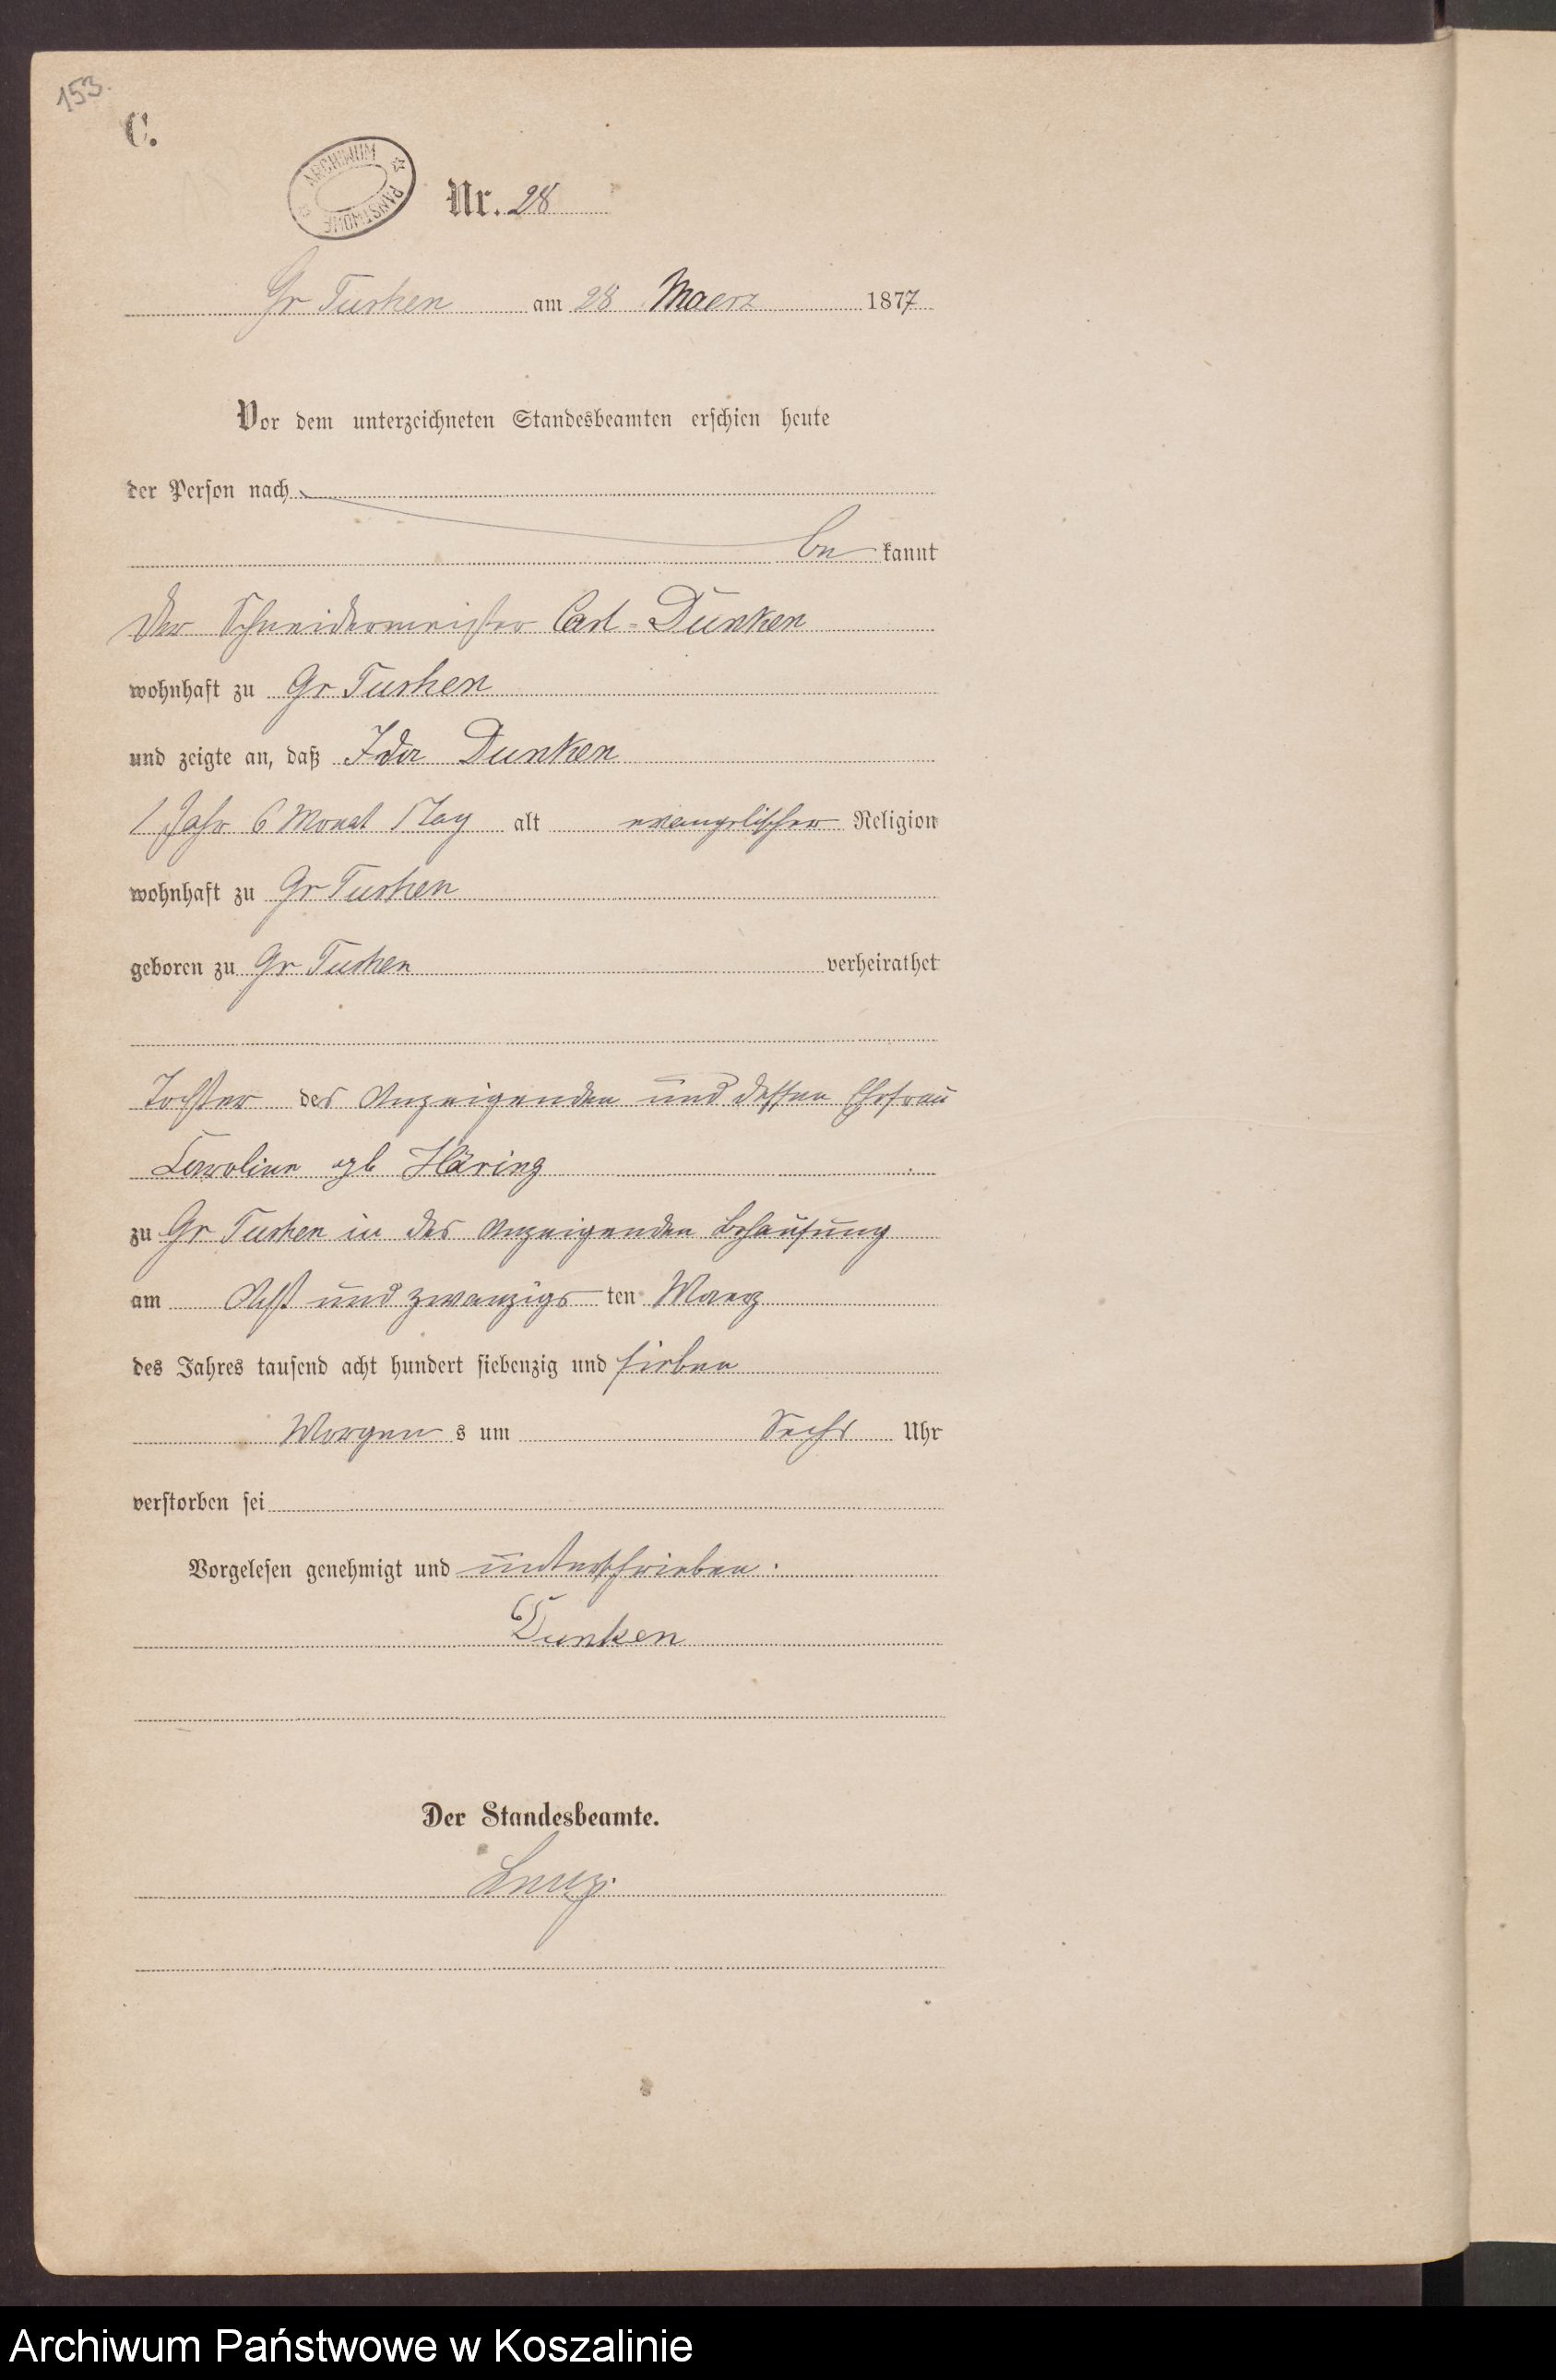 153.
C.
ARCHIWUM PAŃSTWOWE
Nr. 28
Gr Tuchen am 28 Maerz 1877
Vor dem unterzeichneten Standesbeamten erschien heute
der Person nach
be kannt
Der Schneidermeister Carl Dunken
wohnhaft zu Gr Tuchen
und zeigte an, daß Ida Dunken
1 Jahr 6 Monat 1 Tag alt evangelischer Religion
wohnhaft zu Gr Tuchen
geboren zu Gr Tuchen verheirathet
Tochter des Anzeigenden und dessen Ehefrau
Caroline geb Häring
zu Gr Tuchen in des Anzeigenden Behausung
am Acht und zwanzigs ten Maerz
des Jahres tausend acht hundert siebenzig und sieben
Morgen s um Sechs Uhr
verstorben sei
Vorgelesen genehmigt und unterschrieben.
Dunken
Der Standesbeamte.
Archiwum Państwowe w Koszalinie